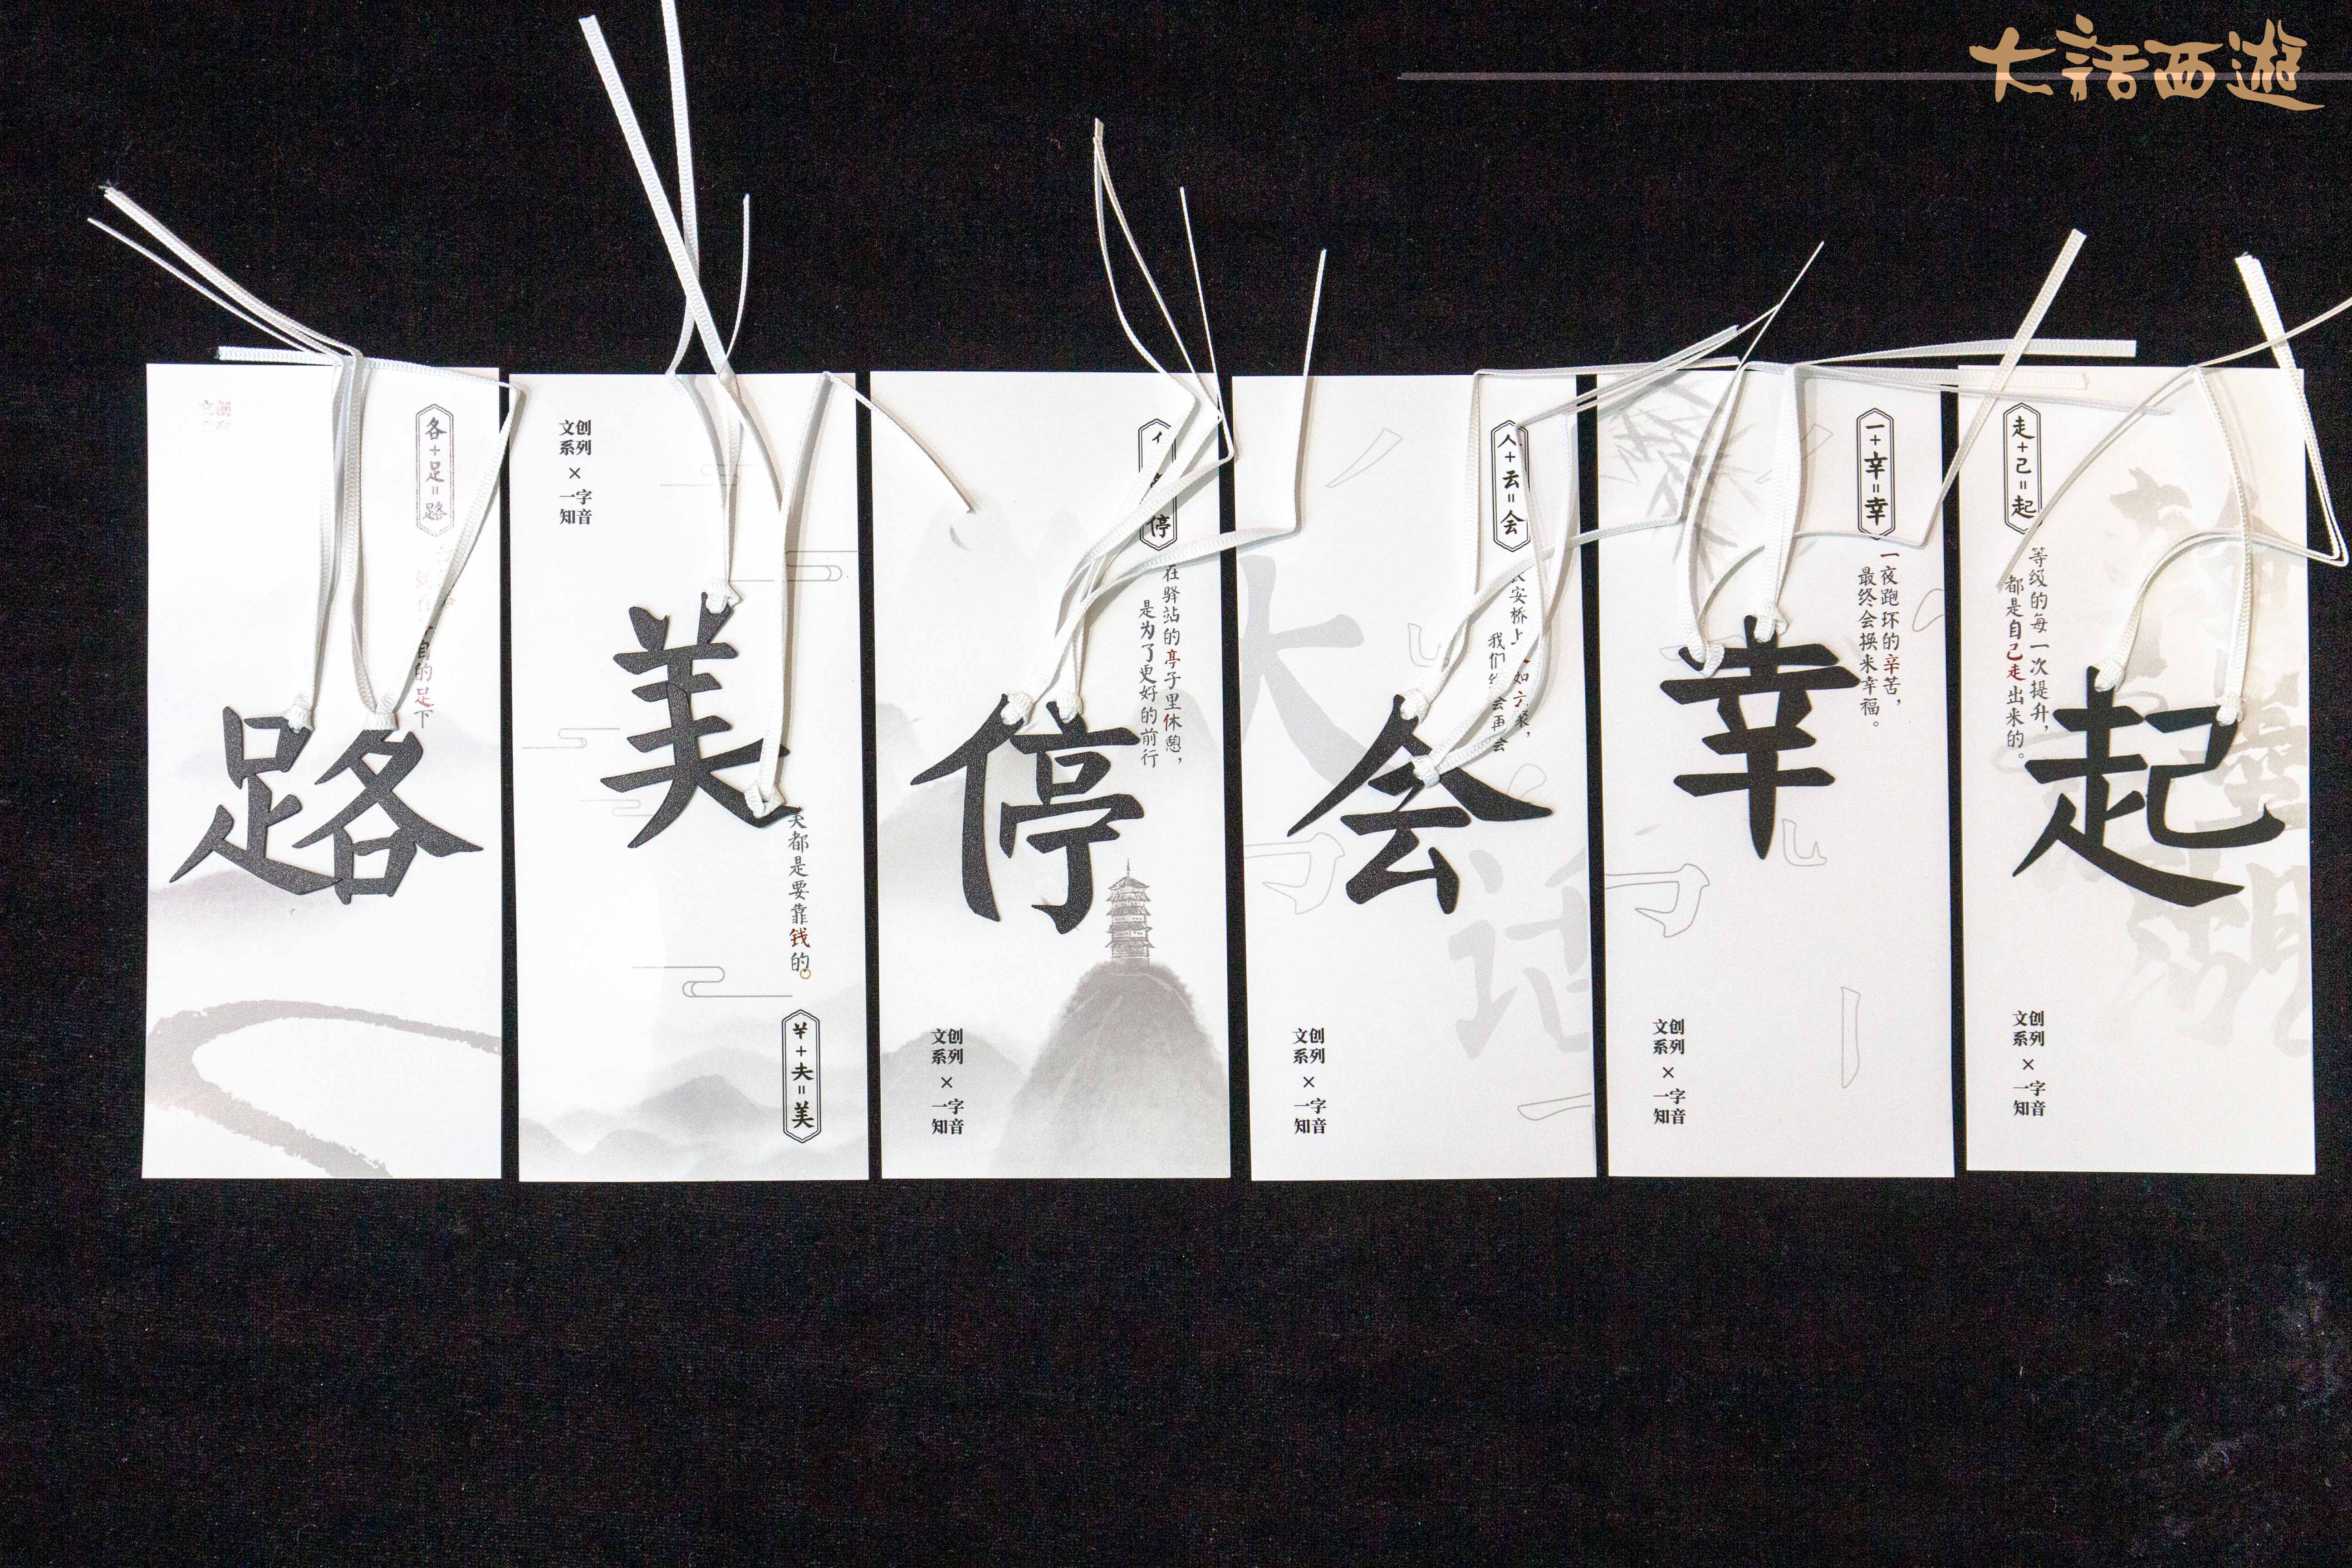 大話西遊
各+足=路
的足下
路
文创
系列
×
一字
知音
美
美都是要靠钱的
䒑+夫=美
停
在驿站的亭子里休憩，
是为了更好的前行
停
文创
系列
×
一字
知音
人+云=会
安桥上
如
我们
会再会
会
大话
文创
系列
×
一字
知音
一+辛=幸
一夜跑环的辛苦，
最终会换来幸福。
幸
文创
系列
×
一字
知音
走+己=起
等级的每一次提升，
都是自己走出来的。
起
文创
系列
×
一字
知音